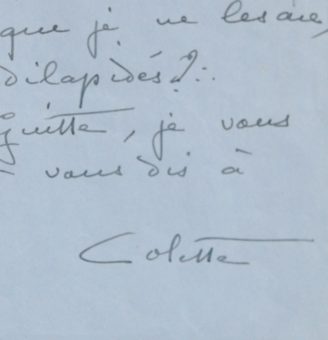 que je ne les aie,
dilapidés ?..
quitte, je vous
vous dis à
Colette